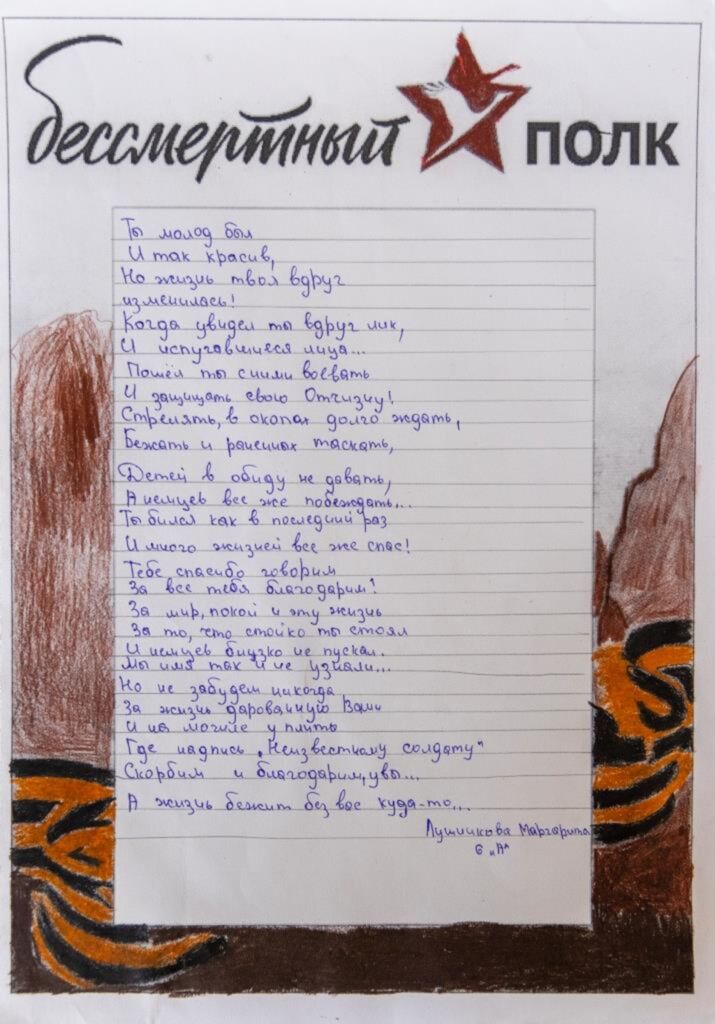 бессмертный ПОЛК
Ты молод был
И так красив,
Но жизнь твоя вдруг
изменилась!
Когда увидел ты вдруг лик,
И испугавшиеся лица...
Пошёл ты с ними воевать
И защищать свою Отчизну!
Стрелять, в окопах долго ждать,
Бежать и раненных таскать,
Детей в обиду не давать,
А немцев все же побеждать...
Ты бился как в последний раз
И много жизней все же спас!
Тебе спасибо говорим
За все тебя благодарим!
За мир, покой и эту жизнь
За то, что стойко ты стоял
И немцев близко не пускал.
Мы имя так и не узнали...
Но не забудем никогда
За жизнь дарованную Вами
И на могиле у плиты
Где надпись „Неизвестному солдату"
Скорбим и благодарим, увы...
А жизнь бежит без вас куда-то...
Лушникова Маргарита
6 „А"